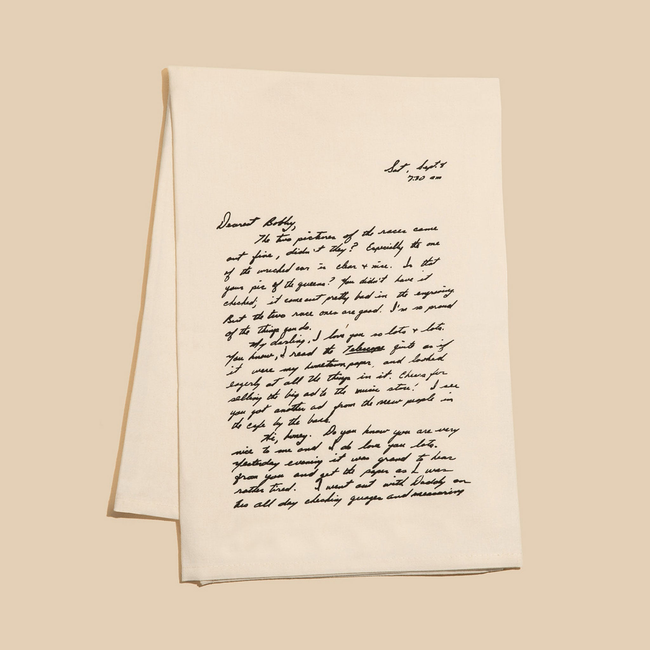 Sat, Sept 8
7:30 am
Dearest Bobby,
The two pictures of the races came
out fine, didn't they? Especially the one
of the wrecked car is clear & nice. Is that
your pic of the queens? You didn't have it
checked, it came out pretty bad in the engraving.
But the two race ones are good. I'm so proud
of the things you do.
My darling, I love you so lots & lots.
You know, I read the Telescope quite as if
it were my hometown paper, and looked
eagerly at all the things in it. Cheers for
selling the big ad to the music store! I see
you got another ad from the new people in
the cafe by the bank.
Hi, honey. Do you know you are very
nice to me and I do love you lots.
Yesterday evening it was grand to hear
from you and get the paper as I was
rather tired. I went out with Daddy on
this all day checking gauges and measuring